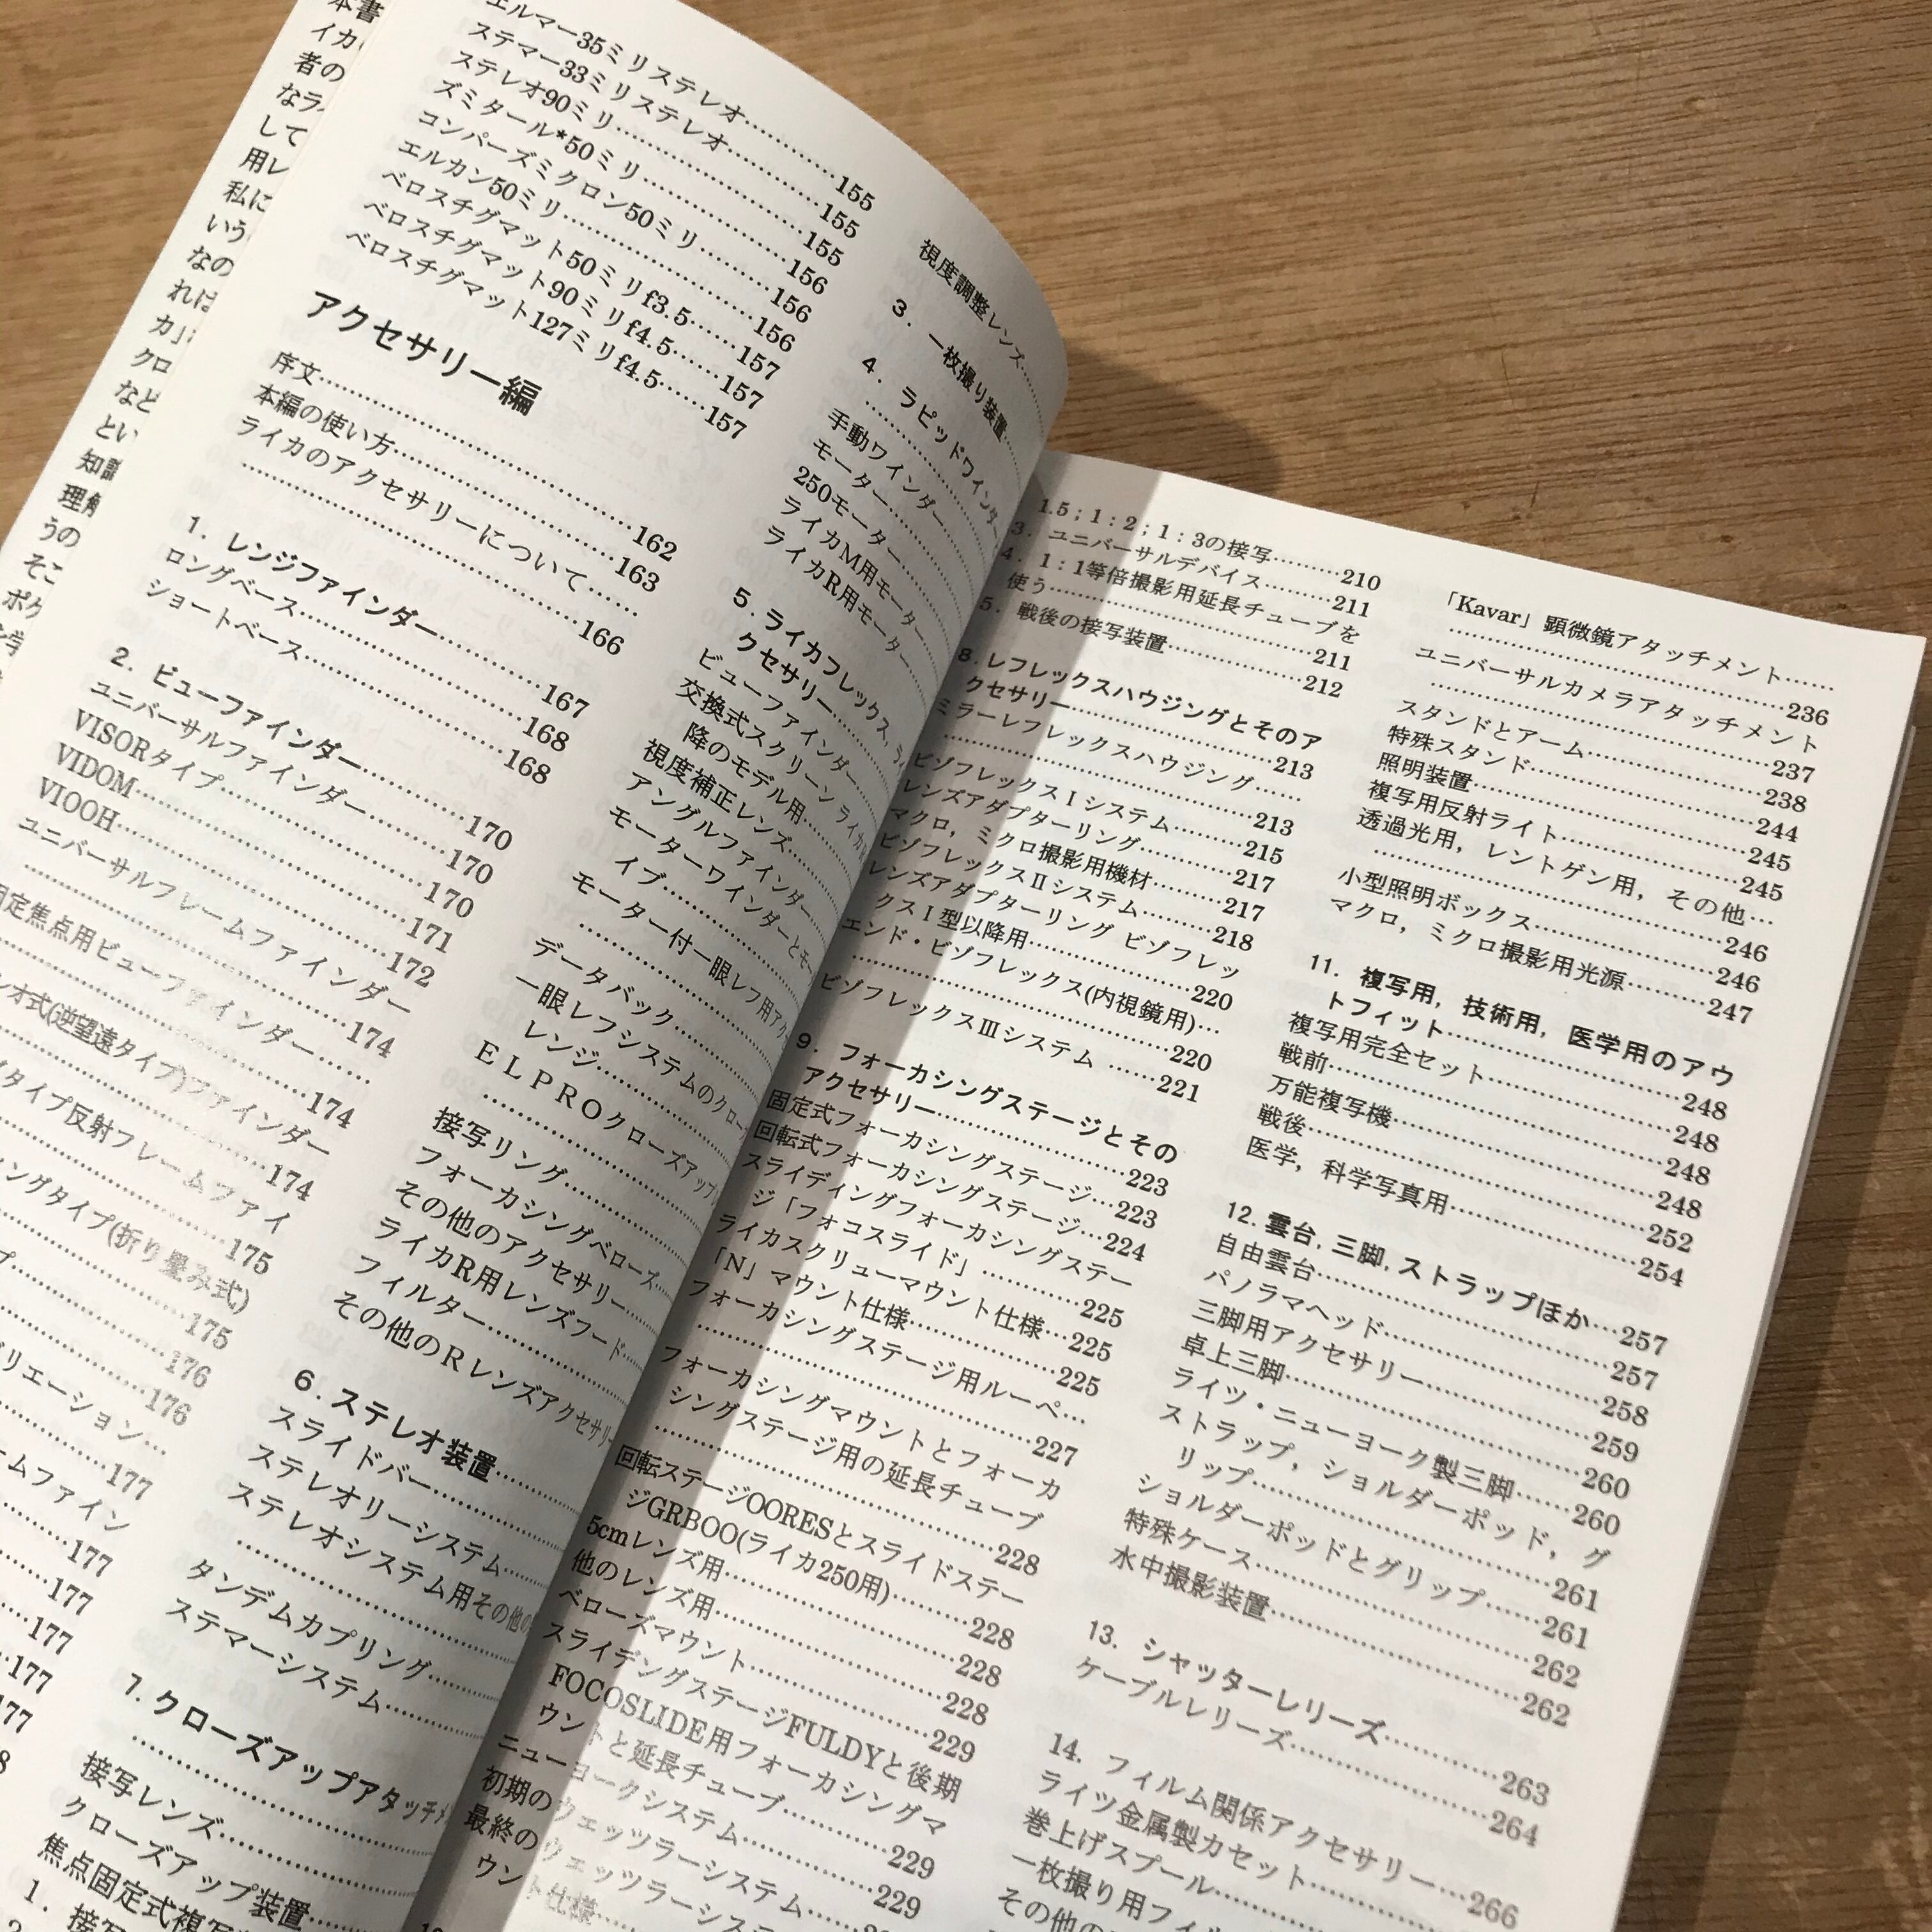 本書
イカ
者の
なラ
して
用レ
私に
いう
なの
れは
カ」
クロ
など
とい
知
理
うの
そこ
ポケ
エルマー35ミリステレオ………155
ステマー33ミリステレオ………155
ステレオ90ミリ………155
ズミタール*50ミリ………156
コンパーズミクロン50ミリ………156
エルカン50ミリ………156
ベロスチグマット50ミリf3.5……157
ベロスチグマット90ミリf4.5……157
ベロスチグマット127ミリf4.5……157
アクセサリー編
序文………162
本編の使い方………163
ライカのアクセサリーについて……
………166
1. レンジファインダー………167
ロングベース………168
ショートベース………168
2. ビューファインダー………170
ユニバーサルファインダー………170
VISORタイプ………170
VIDOM………171
VIOOH………172
ユニバーサルフレームファインダー
………174
固定焦点用ビューファインダー……
………174
オ式(逆望遠タイプ)ファインダー
………174
タイプ反射フレームファイ
………175
ングタイプ(折り畳み式)
………175
プ………176
………176
リエーション…
………177
ームファイン
………177
………177
………177
…177
177
視度調整レンズ
3. 一枚撮り装置
4. ラピッドワインダー
手動ワインダー
モーター
250モーター
ライカM用モーター
ライカR用モーター
5. ライカフレックス,
クセサリー
ビューファインダー
交換式スクリーン ライカ
降のモデル用
視度補正レンズ
アングルファインダー
モーターワインダーとモー
イブ
モーター付一眼レフ用アク
データバック
一眼レフシステムのクロー
レンジ
ELPROクローズアップ
接写リング
フォーカシングベローズ
その他のアクセサリー
ライカR用レンズフード
フィルター
その他のRレンズアクセサリー
6. ステレオ装置
スライドバー
ステレオリーシステム
ステレオシステム用その他の
タンデムカプリング
ステマーシステム
7. クローズアップアタッチメ
接写レンズ
クローズアップ装置
焦点固定式複写
1. 接写
1.5；1：2；1：3の接写………210
3. ユニバーサルデバイス………211
4. 1：1等倍撮影用延長チューブを
使う………211
5. 戦後の接写装置………212
8. レフレックスハウジングとそのア
クセサリー………213
ミラーレフレックスハウジング……
………213
ビゾフレックスⅠシステム………215
レンズアダプターリング………217
マクロ，ミクロ撮影用機材………217
ビゾフレックスⅡシステム………218
レンズアダプターリング ビゾフレッ
クスⅠ型以降用………220
エンド・ビゾフレックス(内視鏡用)…
………220
ビゾフレックスⅢシステム ……221
9. フォーカシングステージとその
アクセサリー………223
固定式フォーカシングステージ…223
回転式フォーカシングステージ…224
スライディングフォーカシングステー
ジ「フォコスライド」………225
ライカスクリューマウント仕様…225
「N」マウント仕様………225
フォーカシングステージ用ルーペ…
………227
フォーカシングマウントとフォーカ
シングステージ用の延長チューブ
………228
回転ステージOORESとスライドステー
ジGRBOO(ライカ250用)………228
5cmレンズ用………228
他のレンズ用………228
ベローズマウント………229
スライデングステージFULDYと後期
FOCOSLIDE用フォーカシングマ
ウントと延長チューブ………229
ニューヨークシステム………229
初期のウェッツラーシステム
最終のウェッツラーシステム
ウント仕様
「Kavar」顕微鏡アタッチメント……
………236
ユニバーサルカメラアタッチメント
………237
スタンドとアーム………238
特殊スタンド………244
照明装置………245
複写用反射ライト………245
透過光用，レントゲン用，その他…
………246
小型照明ボックス………246
マクロ，ミクロ撮影用光源………247
11. 複写用，技術用，医学用のアウ
トフィット………248
複写用完全セット………248
戦前………248
万能複写機………248
戦後………252
医学，科学写真用………254
12. 雲台, 三脚, ストラップほか…257
自由雲台………257
パノラマヘッド………258
三脚用アクセサリー………259
卓上三脚………260
ライツ・ニューヨーク製三脚……260
ストラップ，ショルダーポッド，グ
リップ………261
ショルダーポッドとグリップ……261
特殊ケース………262
水中撮影装置………262
13. シャッターレリーズ………263
ケーブルレリーズ………264
14. フィルム関係アクセサリー…266
ライツ金属製カセット
巻上げスプール
一枚撮り用フィル
その他の